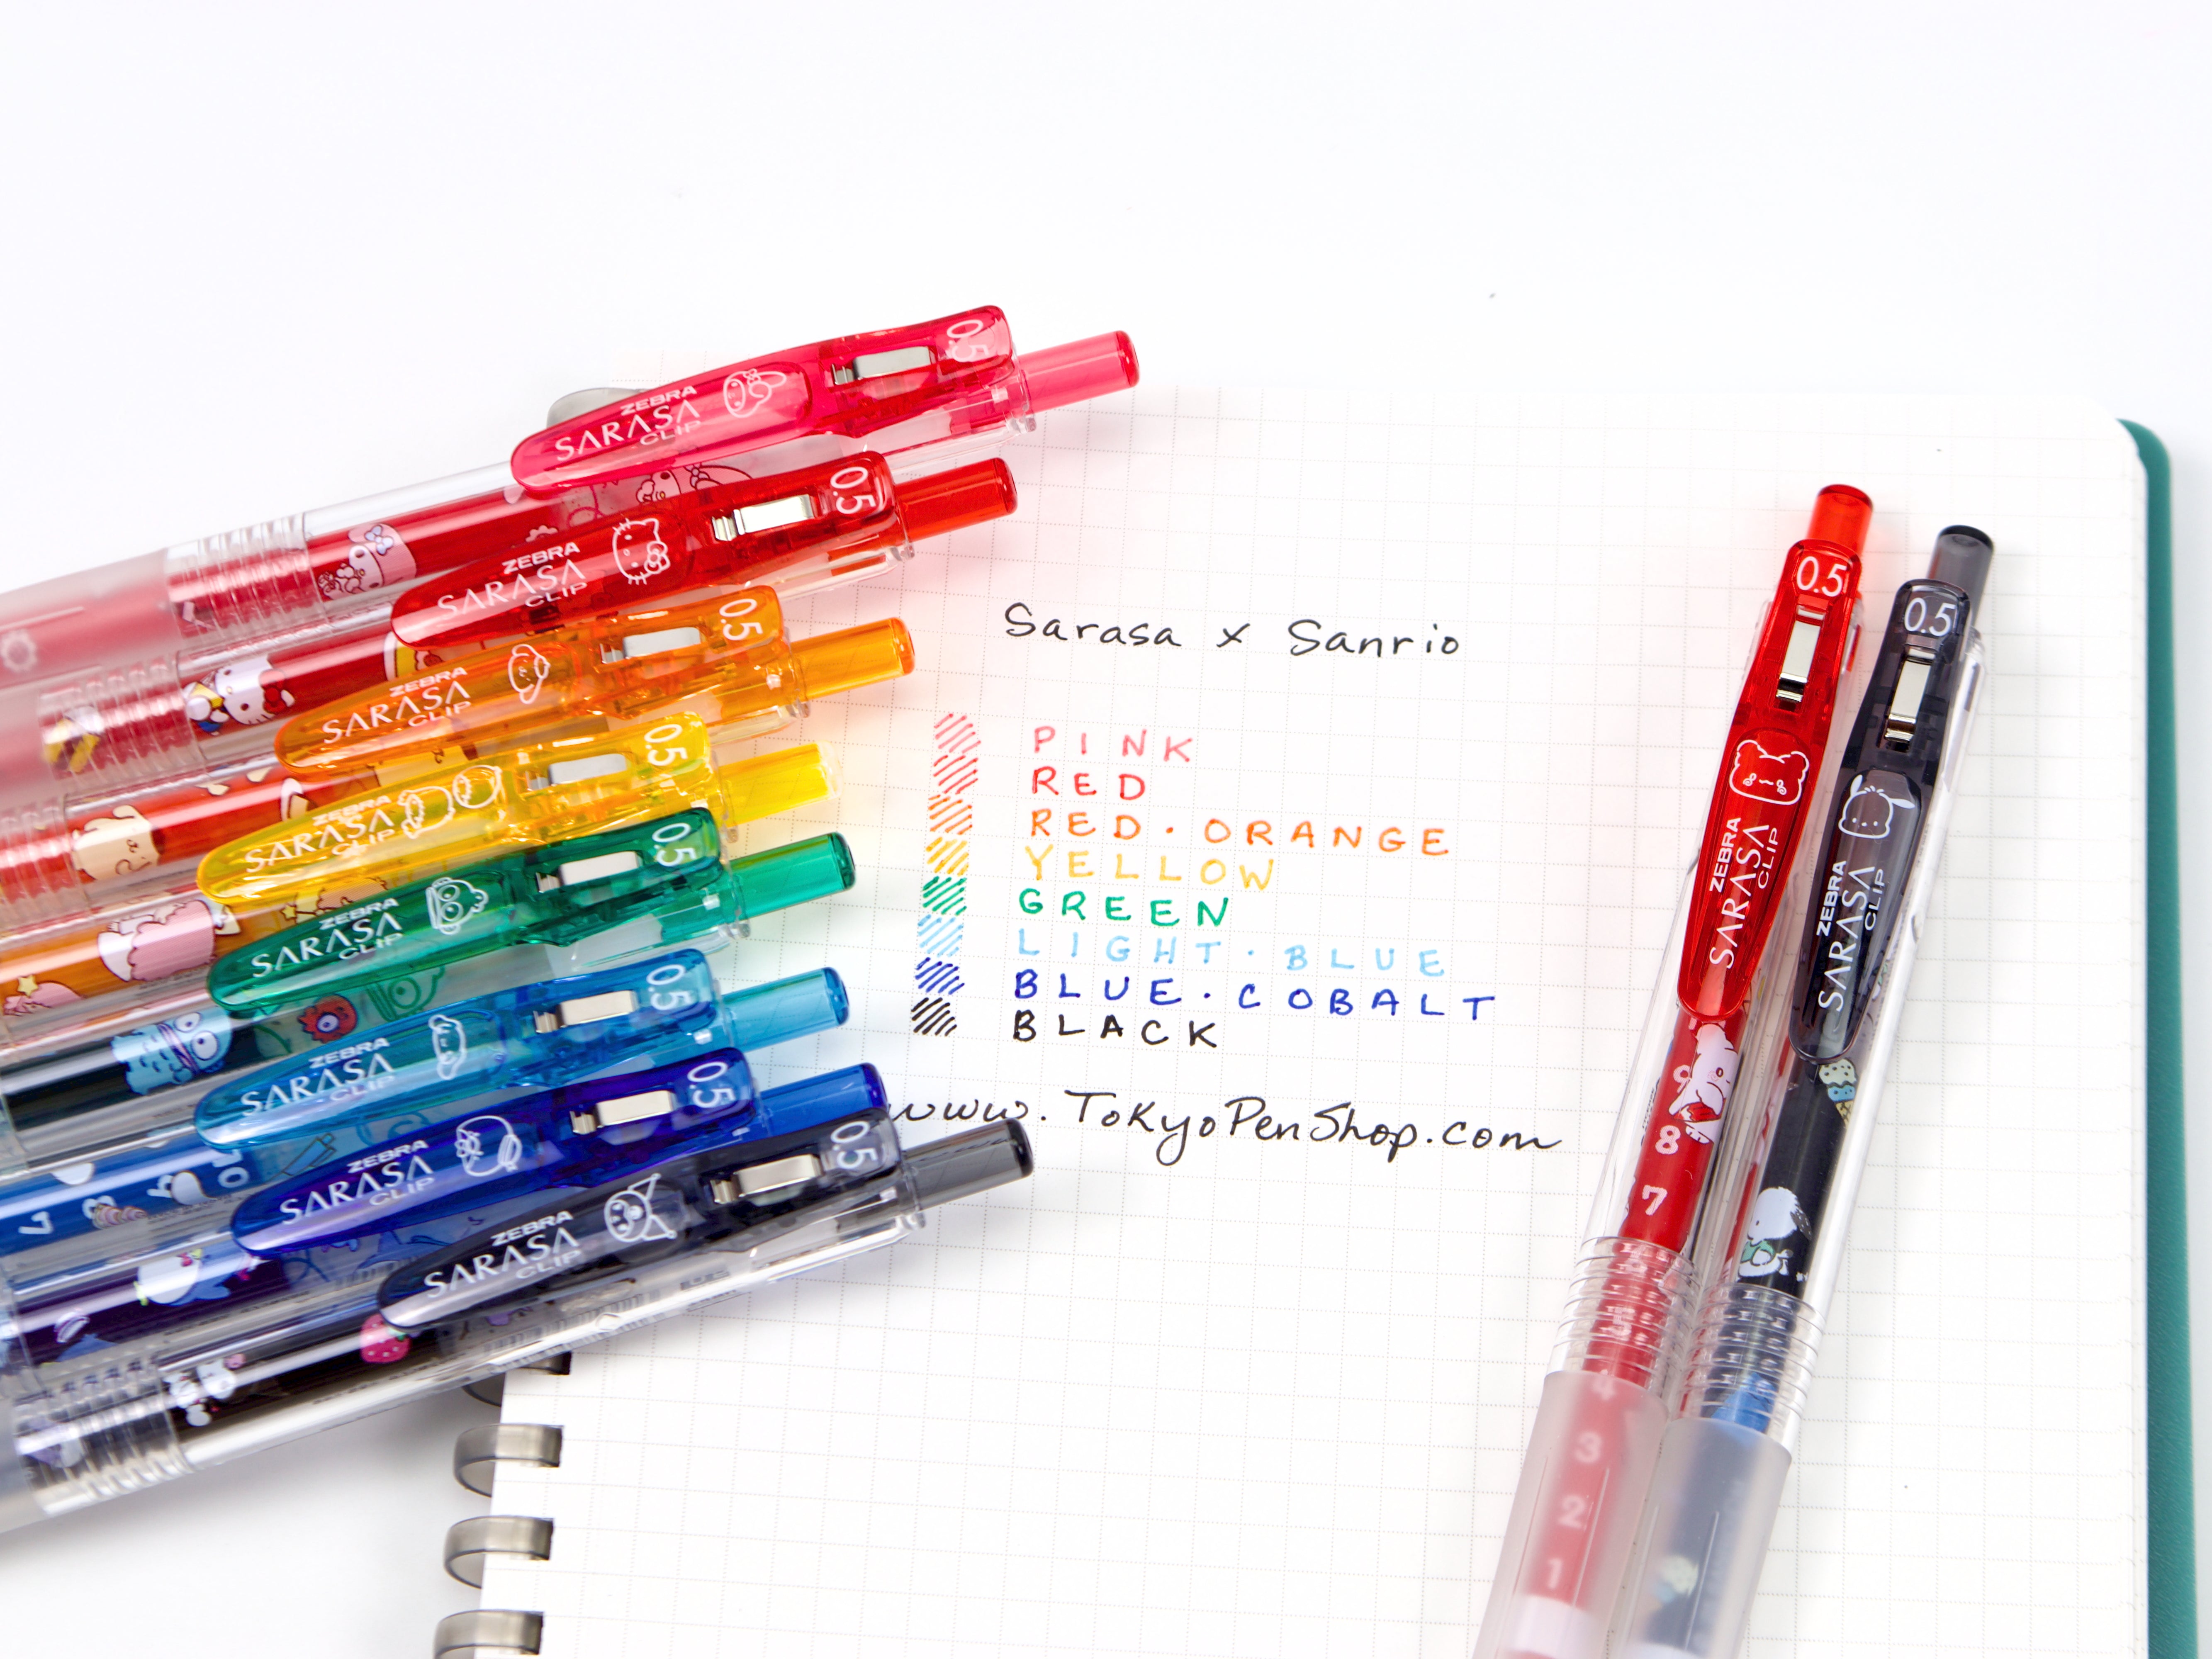 0.5
ZEBRA
SARASA
CLIP
0.5
ZEBRA
SARASA
CLIP
0.5
ZEBRA
SARASA
CLIP
0.5
ZEBRA
SARASA
CLIP
0.5
ZEBRA
SARASA
CLIP
0.5
ZEBRA
SARASA
CLIP
10
7
0.5
ZEBRA
SARASA
CLIP
0.5
ZEBRA
SARASA
CLIP
Sarasa x Sanrio
PINK
RED
RED·ORANGE
YELLOW
GREEN
LIGHT·BLUE
BLUE·COBALT
BLACK
www.TokyoPenShop.com
0.5
ZEBRA
SARASA
CLIP
9
8
7
4
3
2
1
0.5
ZEBRA
SARASA
CLIP